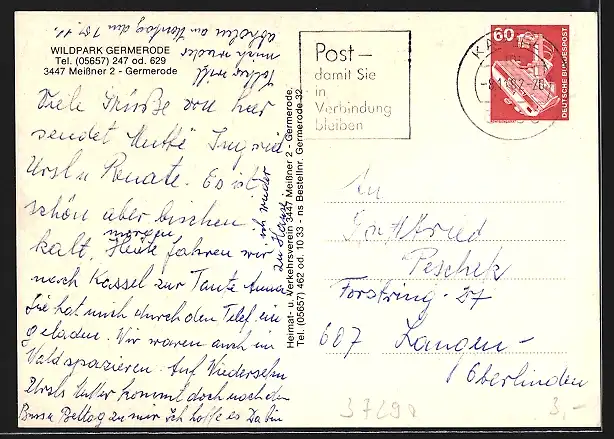 WILDPARK GERMERODE
Tel. (05657) 247 od. 629
3447 Meißner 2 - Germerode
Viele Grüße von hier
sendet Mutti Ingrid
Ursl u Renate. Es ist
schön aber bischen
kalt. Heute morgen fahren wir
nach Kassel zur Tante Anna
Sie hat mich durch den Telef. ein
geladen. Wir waren auch im
Wald spazieren. Auf Wiedersehn
Ursls Mutter kommt doch nach dem
Buss u Bettag zu mir ich hoffe es
ich wieder
zu Hause
will
mich wieder
abholen am Montag den
Heimat- u. Verkehrsverein 3447 Meißner 2 - Germerode.
Tel. (05657) 462 od. 10 33 - ns Bestellnr. Germerode 32
Post –
damit Sie
in
Verbindung
bleiben
60
DEUTSCHE BUNDESPOST
An
Peschek
Forstring 27
607 Langen –
Oberlinden
3,-